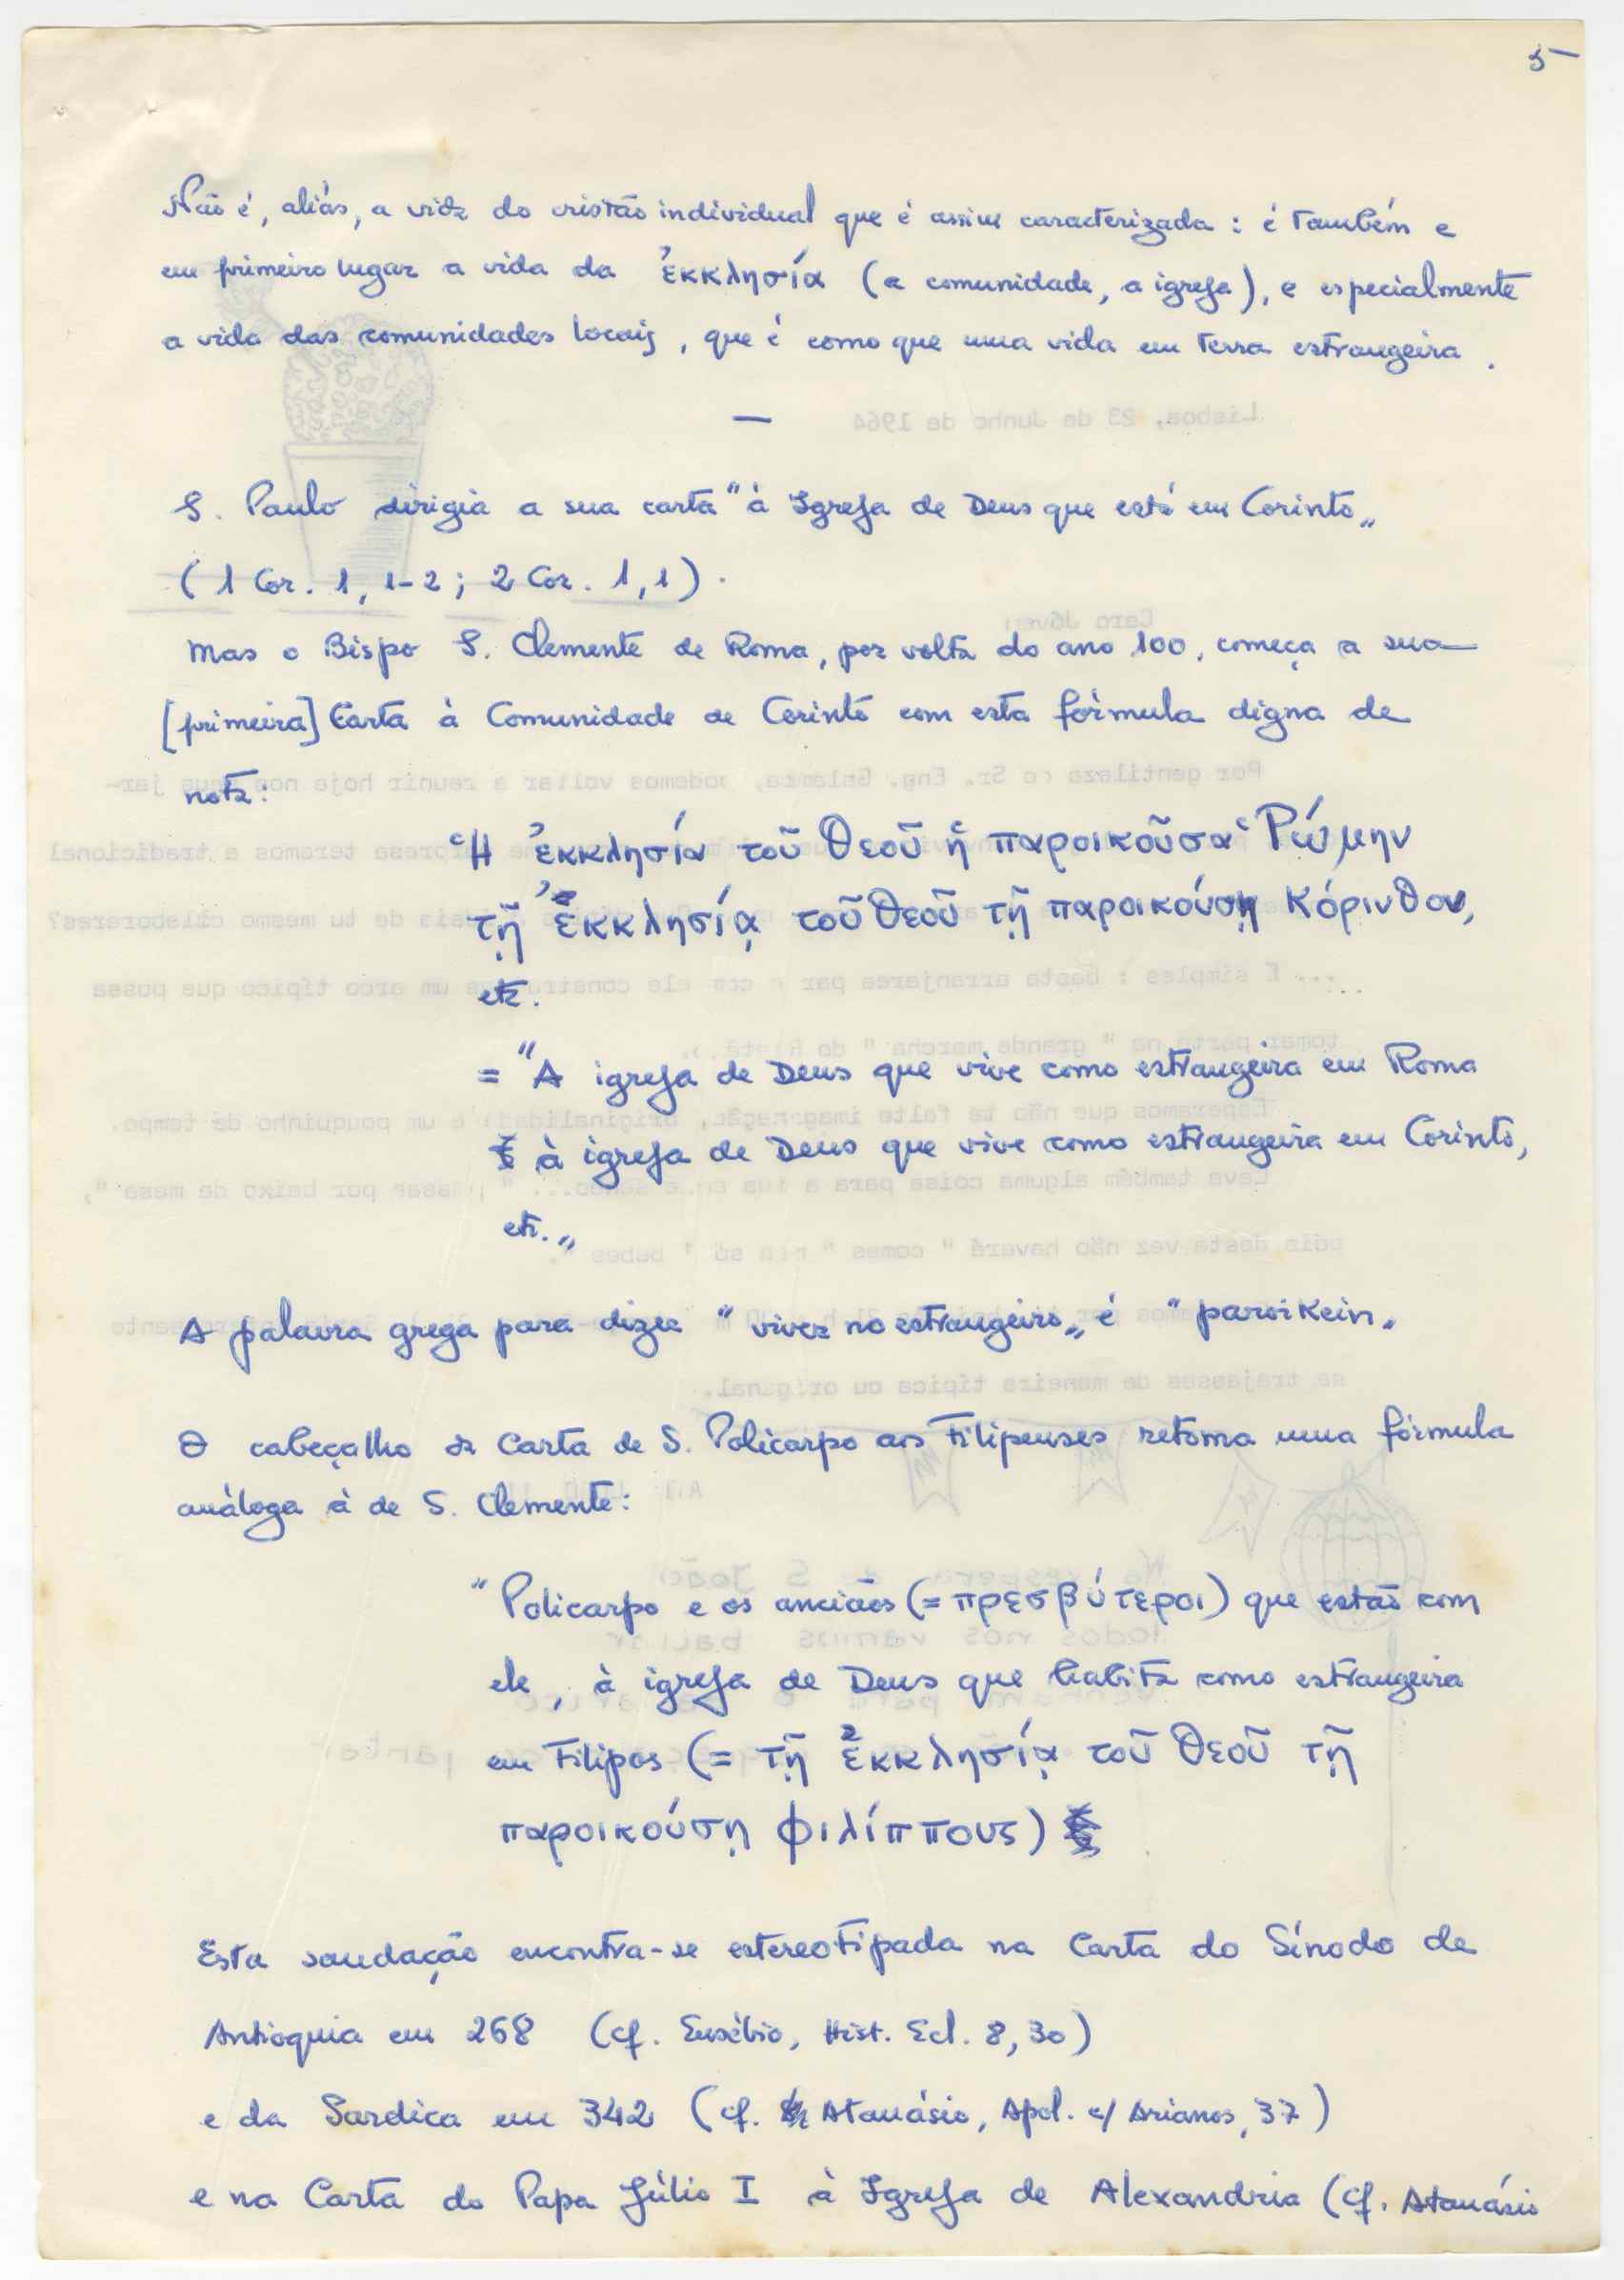 5
Não é, aliás, a vida do cristão individual que é assim caracterizada : é também e
em primeiro lugar a vida da ἐκκλησία (a comunidade, a igreja), e especialmente
a vida das comunidades locais, que é como que uma vida em terra estrangeira.
—
S. Paulo dirigia a sua carta "à Igreja de Deus que está em Corinto„
(1 Cor. 1, 1-2 ; 2 Cor. 1,1).
Mas o Bispo S. Clemente de Roma, por volta do ano 100, começa a sua
[primeira] Carta à Comunidade de Corinto com esta fórmula digna de
nota:
Ἡ ἐκκλησία τοῦ Θεοῦ ἡ παροικοῦσα Ῥώμην
τῇ ἐκκλησίᾳ τοῦ Θεοῦ τῇ παροικούσῃ Κόρινθον,
etc.
= "A igreja de Deus que vive como estrangeira em Roma
à igreja de Deus que vive como estrangeira em Corinto,
etc.„
A palavra grega para dizer "viver no estrangeiro„ é "paroikein„
O cabeçalho da Carta de S. Policarpo aos Filipenses retoma uma fórmula
análoga à de S. Clemente:
"Policarpo e os anciãos (= πρεσβύτεροι) que estão com
ele, à igreja de Deus que habita como estrangeira
em Filipos (= τῇ ἐκκλησίᾳ τοῦ Θεοῦ τῇ
παροικούσῃ Φιλίππους)
Esta saudação encontra-se estereotipada na Carta do Sínodo de
Antioquia em 268 (cf. Eusébio, Hist. Ecl. 8, 30)
e da Sardica em 342 (cf. Atanásio, Apol. c/ Arianos, 37)
e na Carta do Papa Júlio I à Igreja de Alexandria (cf. Atanásio